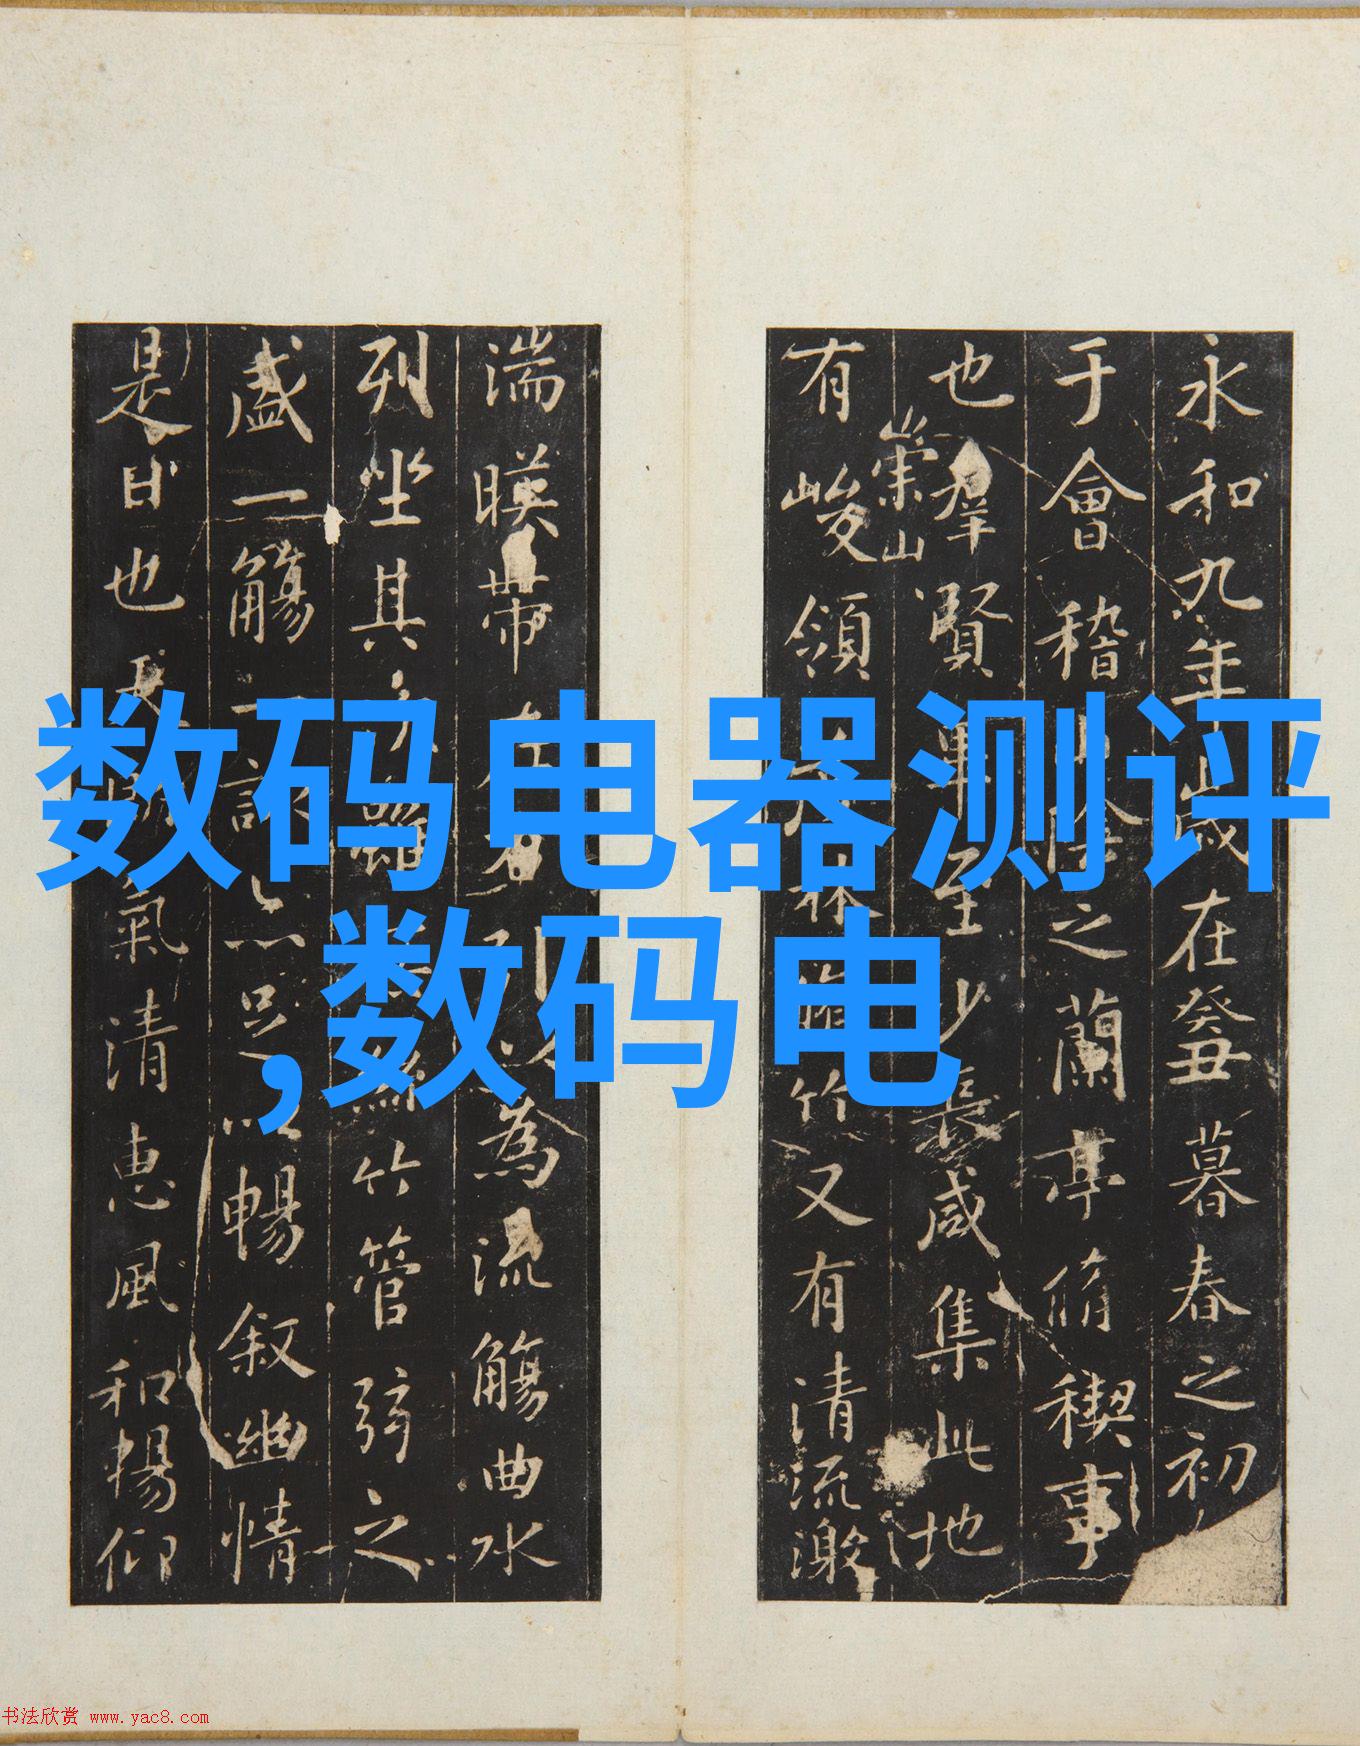 永和九年歳在癸丑暮春之初
于會稽山陰之蘭亭脩稧事
也羣賢畢至少長咸集此地
崇山
有峻領茂林脩竹又有清流激
湍暎帶左右引以為流觴曲水
列坐其次雖無絲竹管弦之
盛一觴一詠亦足以暢叙幽情
是日也天朗氣清惠風和暢仰
数码电器测评
,数码电
书法欣赏 www.yac8.com